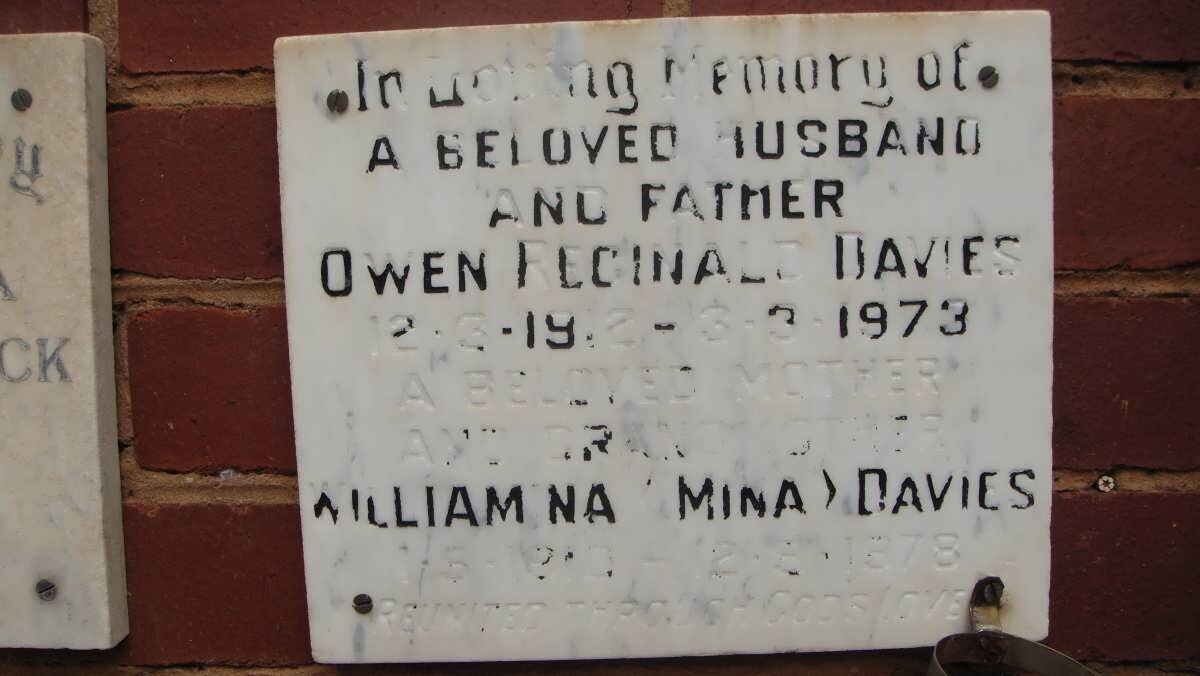 In Loving Memory of
A BELOVED HUSBAND
AND FATHER
OWEN REGINALD DAVIES
12·3·1912 - 3·3·1973
A BELOVED MOTHER
AND GRANDMOTHER
WILLIAMINA (MINA) DAVIES
1978
REUNITED THROUGH GOD'S LOVE
CK